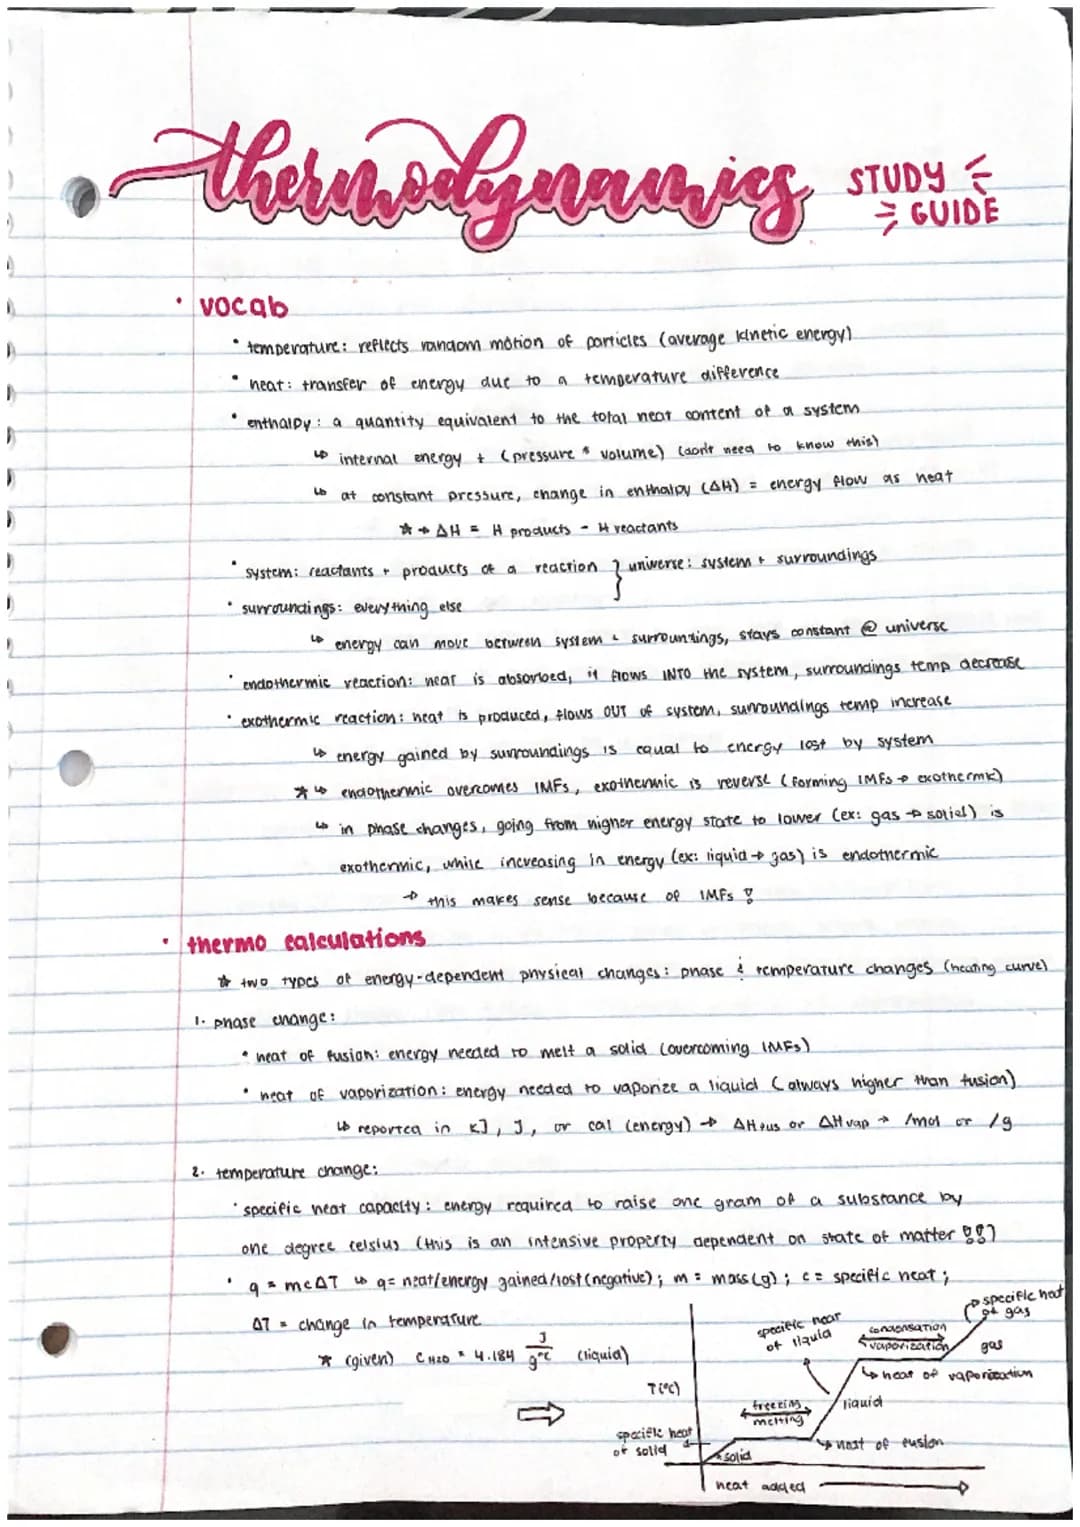 thermodynamics STUDY GUIDE
• vocab
• temperature: reflects random motion of particles (average kinetic energy)
• heat: transfer of energy due to a temperature difference
• enthalpy: a quantity equivalent to the total heat content of a system
↳ internal energy + (pressure * volume) (don't need to know this)
↳ at constant pressure, change in enthalpy (ΔH) = energy flow as heat
☆→ ΔH = H products - H reactants
• system: reactants + products of a reaction } universe: system + surroundings
• surroundings: everything else
↳ energy can move between system & surroundings, stays constant @ universe
• endothermic reaction: heat is absorbed, it flows INTO the system, surroundings temp decrease
• exothermic reaction: heat is produced, flows OUT of system, surroundings temp increase
↳ energy gained by surroundings is equal to energy lost by system
☆↳ endothermic overcomes IMFs, exothermic is reverse (forming IMFs → exothermic)
↳ in phase changes, going from higher energy state to lower (ex: gas → solid) is
exothermic, while increasing in energy (ex: liquid → gas) is endothermic
→ this makes sense because of IMFs !
• thermo calculations
☆ two types of energy-dependent physical changes: phase & temperature changes (heating curve)
1. phase change:
• heat of fusion: energy needed to melt a solid (overcoming IMFs)
• heat of vaporization: energy needed to vaporize a liquid (always higher than fusion)
↳ reported in kJ, J, or cal (energy) → ΔHfus or ΔHvap → /mol or /g
2. temperature change:
• specific heat capacity: energy required to raise one gram of a substance by
one degree celsius (this is an intensive property dependent on state of matter !!)
• q = mcΔT ↳ q= heat/energy gained/lost (negative); m = mass (g); c = specific heat;
ΔT = change in temperature
☆ (given) C H2O = 4.184 J/g°C (liquid)
⇨
T(°C)
specific heat of solid
solid
freezing
melting
heat of fusion
specific heat of liquid
liquid
condensation
vaporization
heat of vaporization
specific heat of gas
gas
heat added →